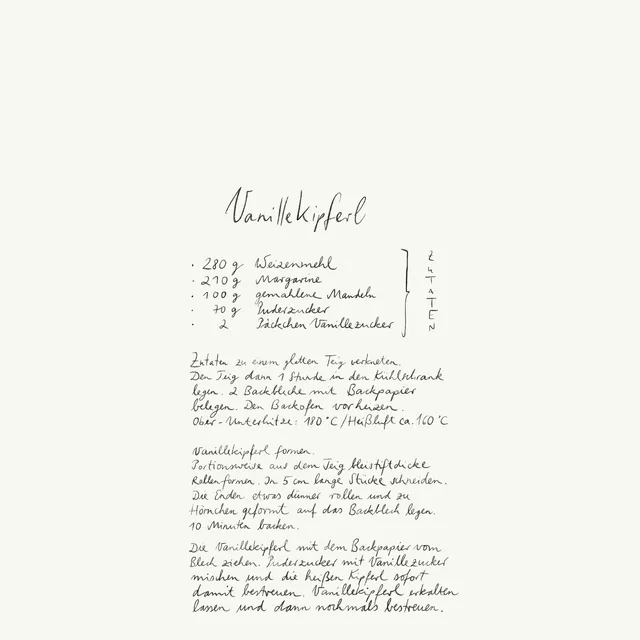 Vanillekipferl
· 280 g Weizenmehl
· 210 g Margarine
· 100 g gemahlene Mandeln
· 70 g Puderzucker
· 2 Päckchen Vanillezucker
ZUTATEN
Zutaten zu einem glatten Teig verkneten.
Den Teig dann 1 Stunde in den Kühlschrank
legen. 2 Backbleche mit Backpapier
belegen. Den Backofen vorheizen.
Ober-Unterhitze: 180°C/Heißluft ca. 160°C
Vanillekipferl formen.
Portionsweise aus dem Teig bleistiftdicke
Rollen formen. In 5 cm lange Stücke schneiden.
Die Enden etwas dünner rollen und zu
Hörnchen geformt auf das Backblech legen.
10 Minuten backen.
Die Vanillekipferl mit dem Backpapier vom
Blech ziehen. Puderzucker mit Vanillezucker
mischen und die heißen Kipferl sofort
damit bestreuen. Vanillekipferl erkalten
lassen und dann nochmals bestreuen.